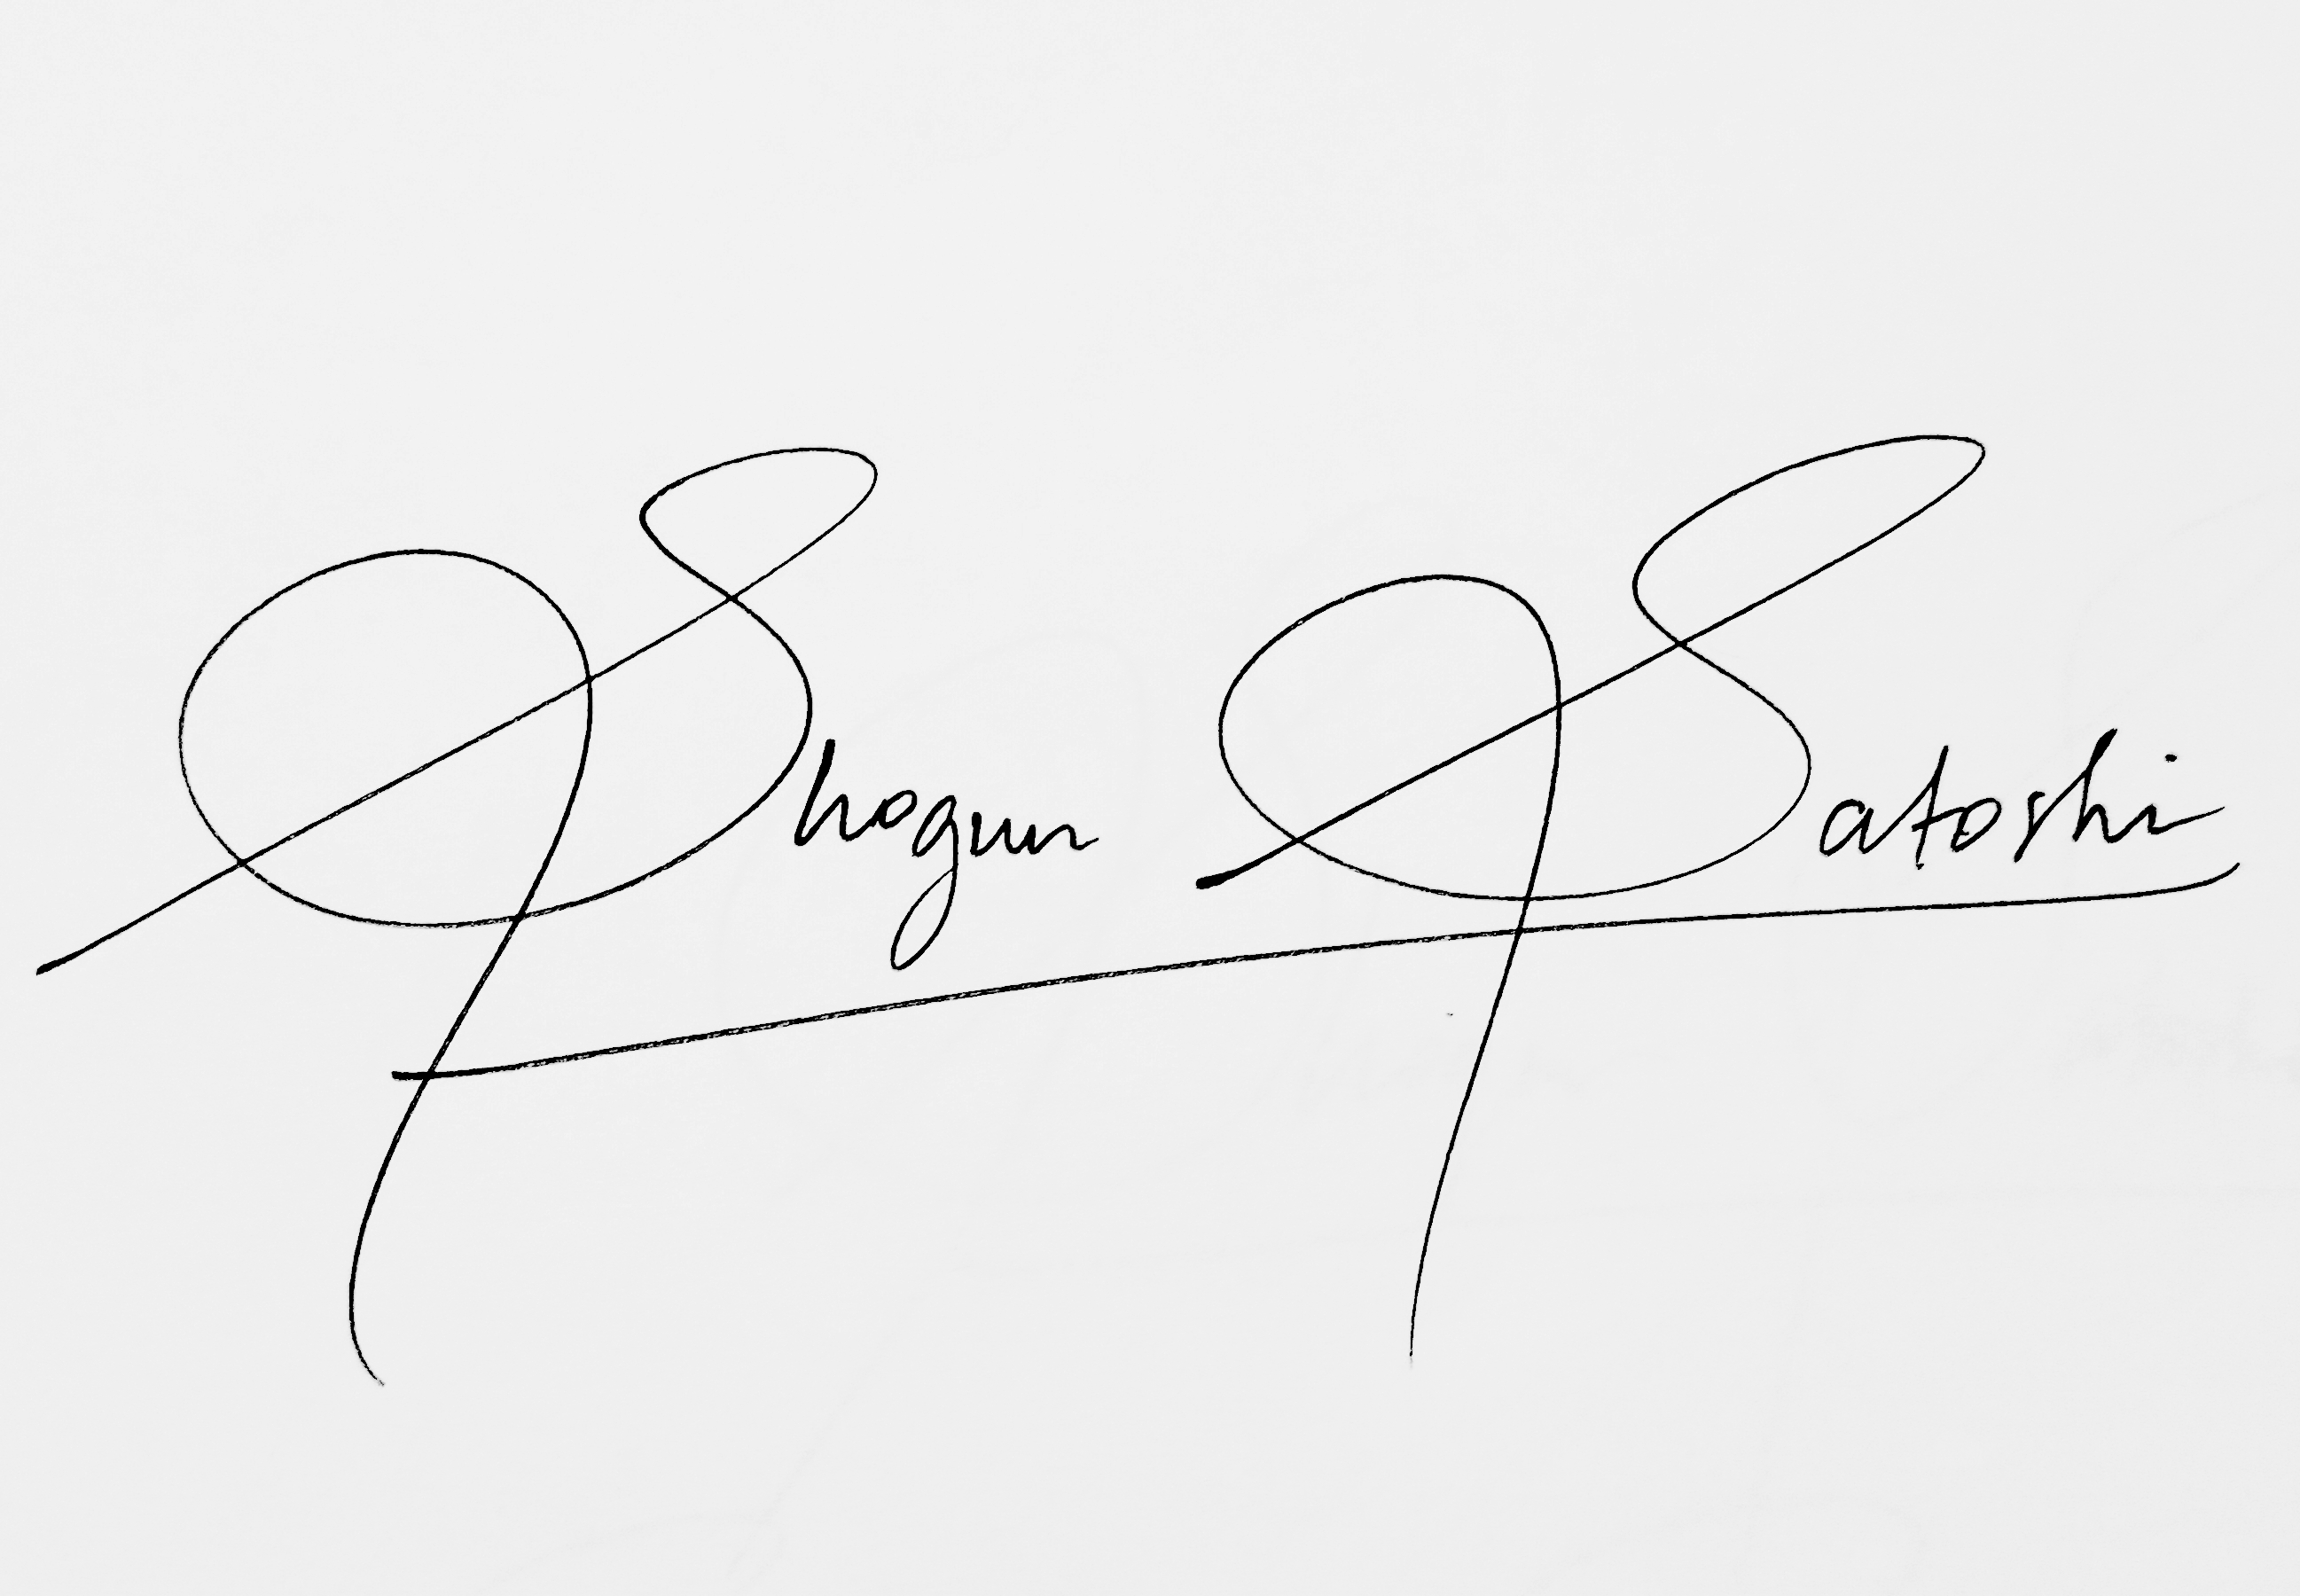 Shogun Satoshi